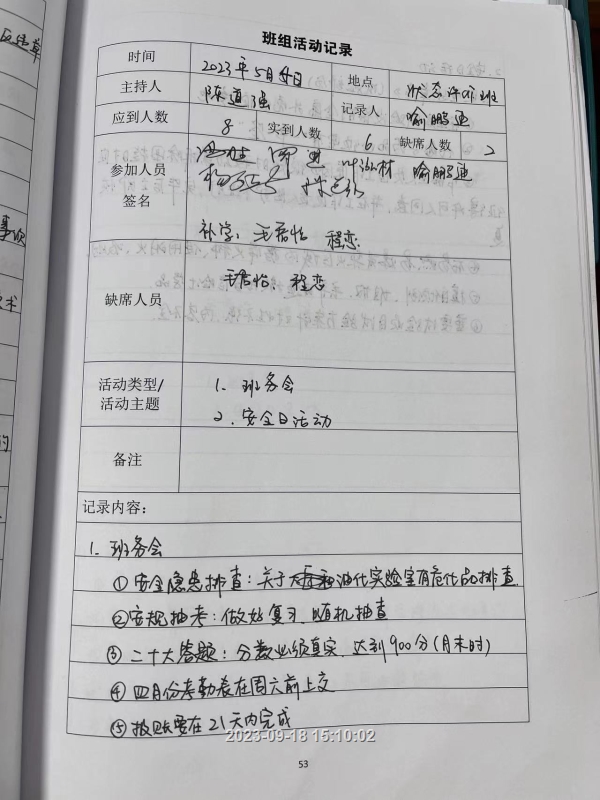 班组活动记录
时间 2023年5月4日 地点 状态评价班
主持人 陈道强 记录人 喻鹏程
应到人数 8 实到人数 6 缺席人数 2
参加人员
签名
喻鹏程
补字: 毛君怡 程恋.
缺席人员 毛君怡, 程恋
活动类型/
活动主题
1. 班务会
2. 安全日活动
备注
记录内容:
1. 班务会
①安全隐患排查: 关于油化实验室有危化品排查.
②安规抽考: 做好复习, 随机抽查
③二十大答题: 分数必须真实, 达到900分(月末时)
④四月份考勤表在周六前上交
⑤报账要在21天内完成
2023-09-18 15:10:02
53